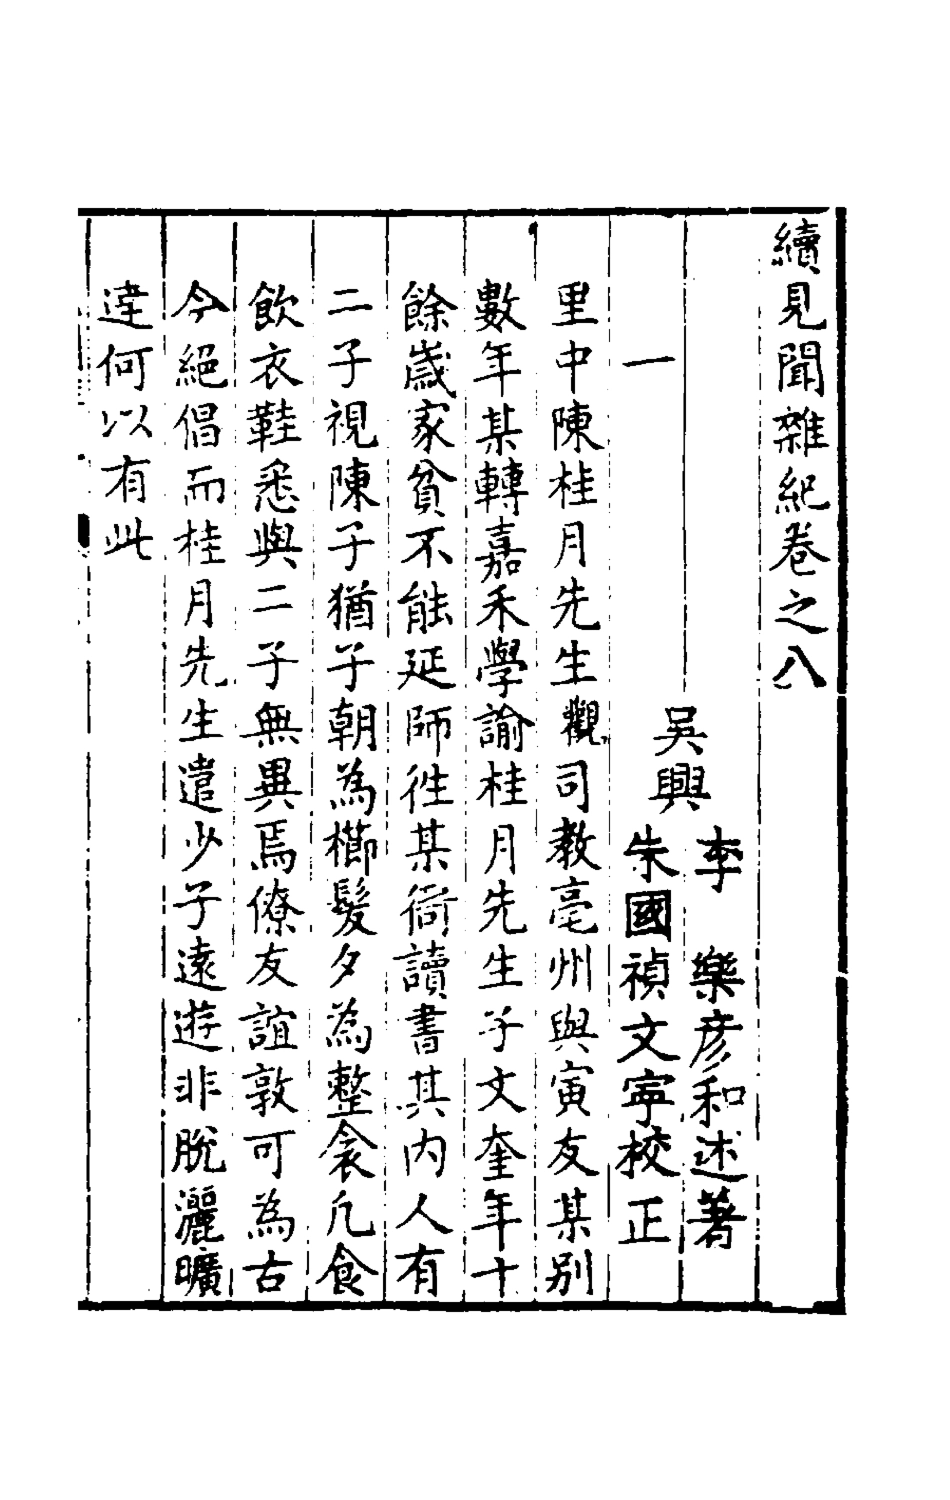 續見聞雜紀卷之八
吳興
李 樂彦和述著
朱國禎文寧校正
一
里中陳桂月先生觀司教亳州與寅友某别
數年某轉嘉禾學諭桂月先生子文奎年十
餘歲家貧不能延師徃某衙讀書其内人有
二子視陳子猶子朝為櫛髮夕為整衾凢食
飲衣鞋悉與二子無異焉僚友誼敦可為古
今絕倡而桂月先生遣少子遠遊非脫灑曠
達何以有此